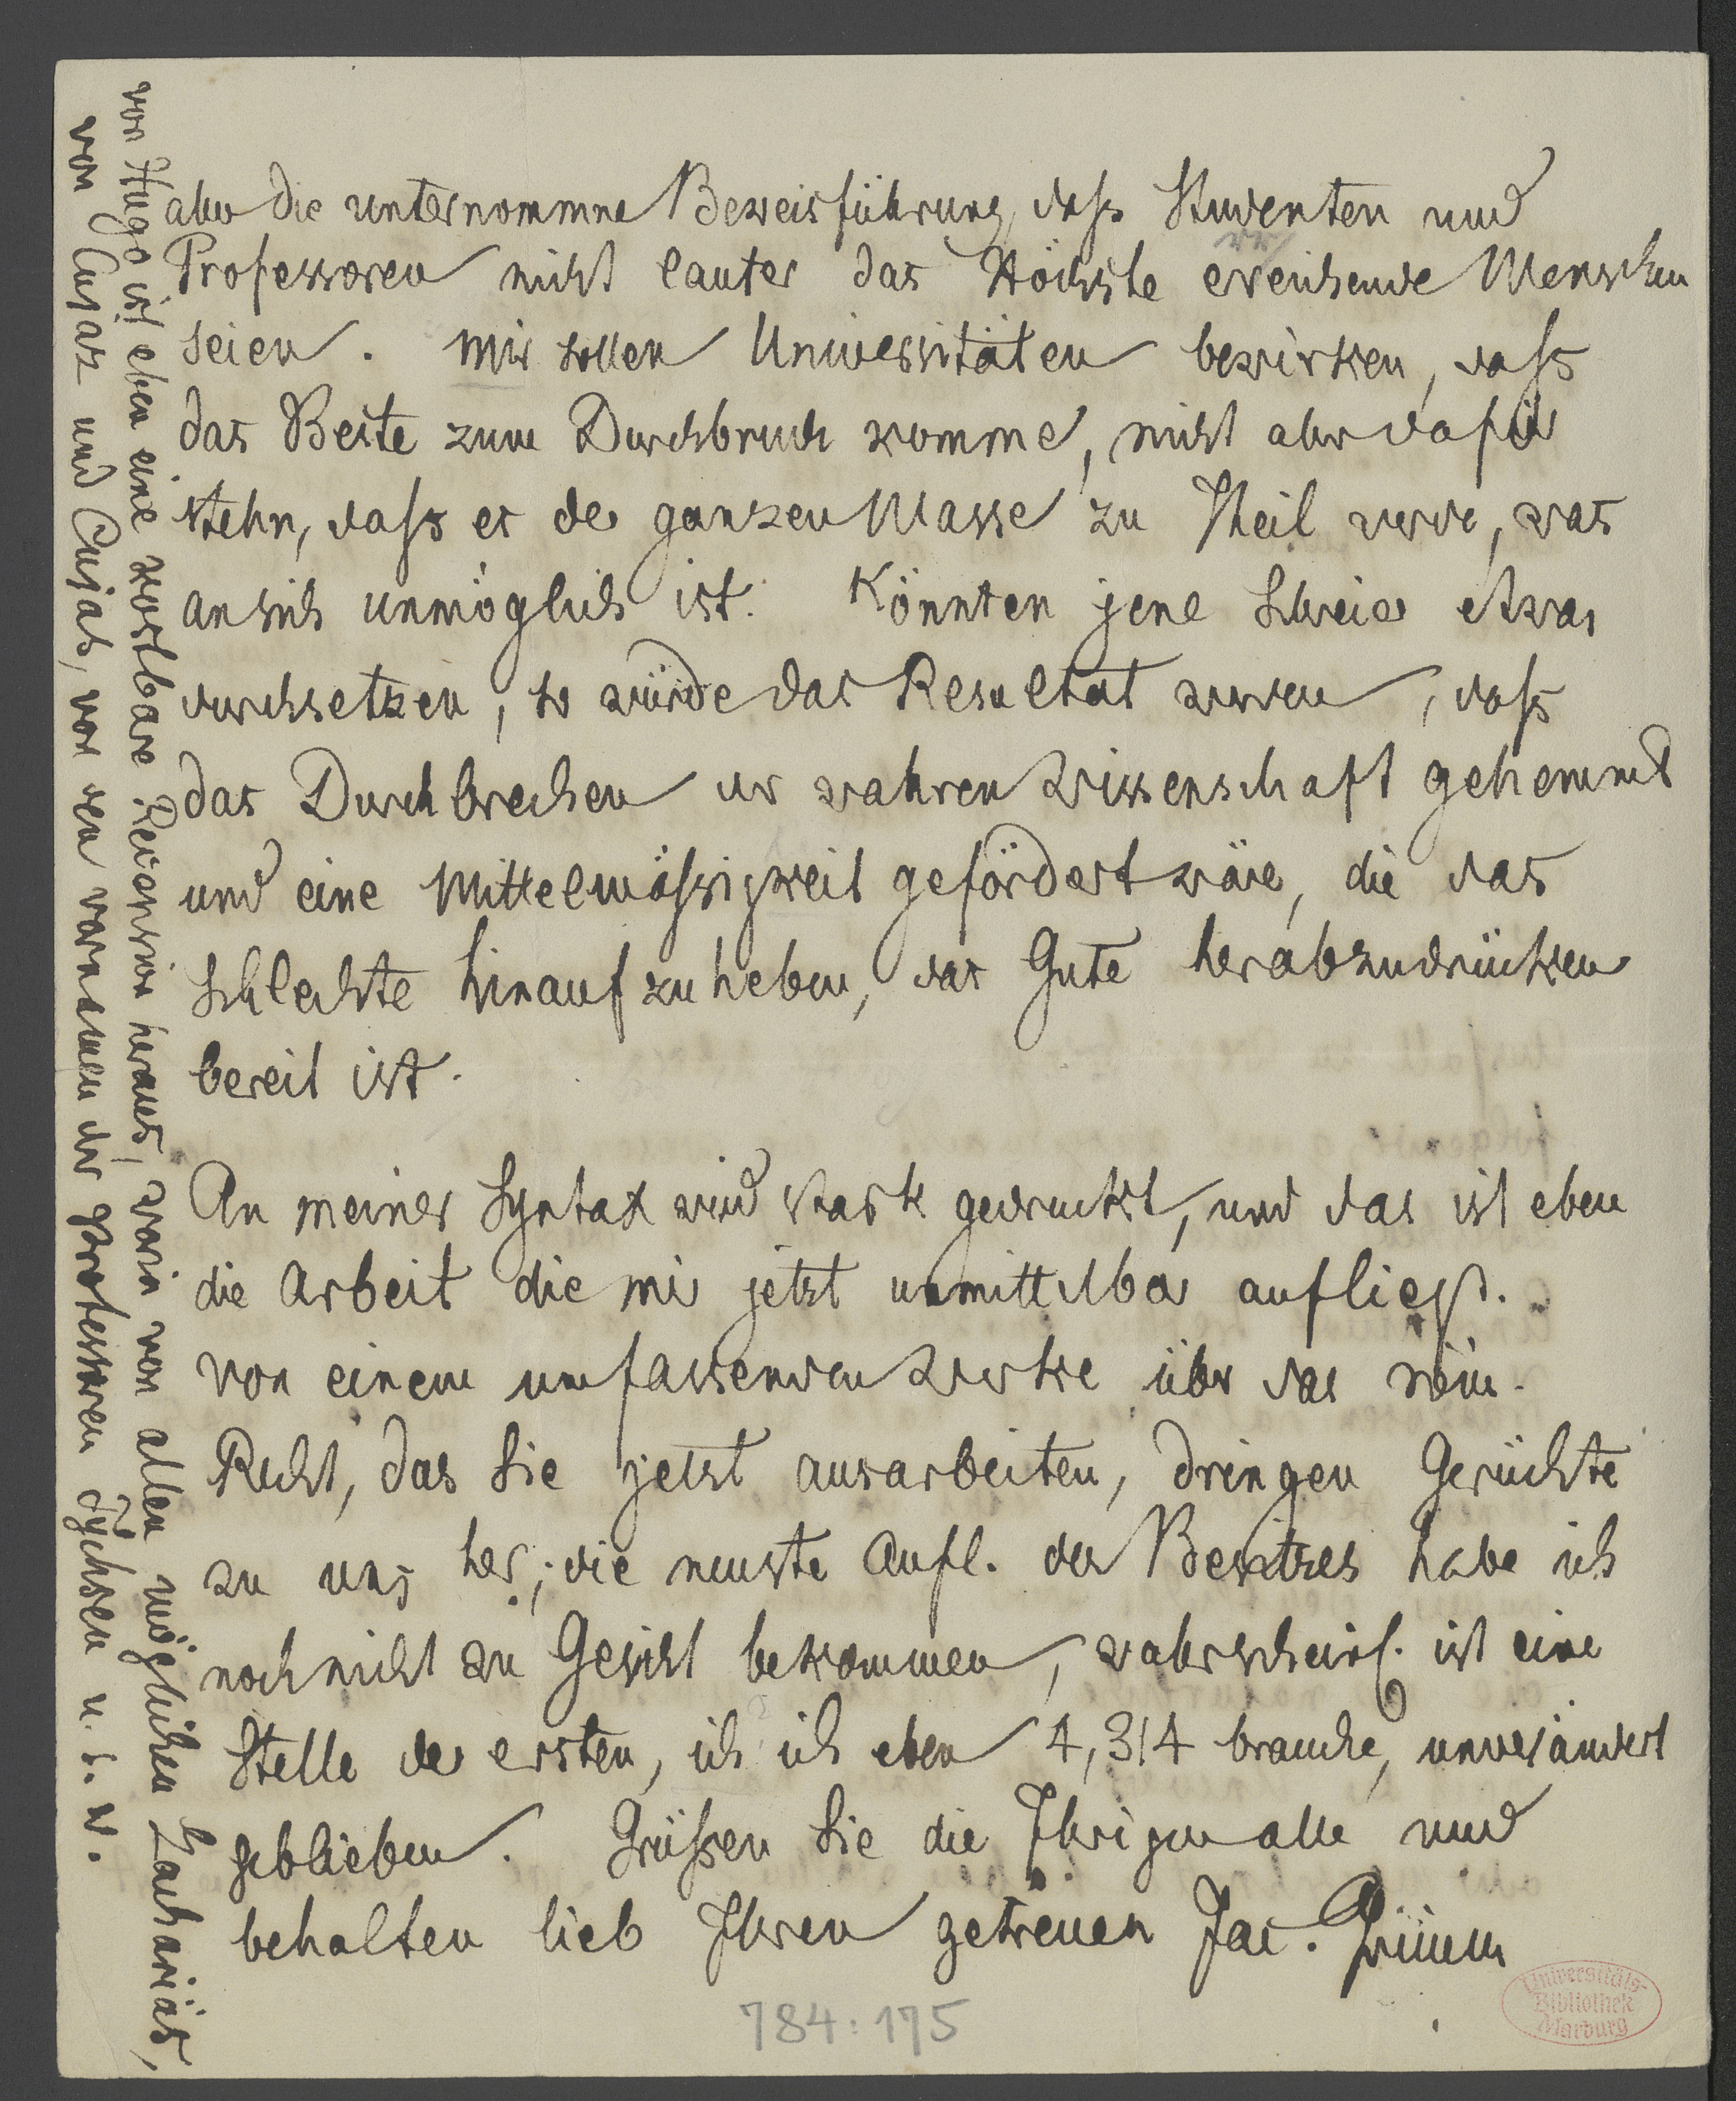 aber die unternommne Beweisführung, dass Studenten und
Professoren nicht lauter das Höchste erreichende Menschen
seien. Mir sollen Universitäten bewirken, dass
das Beste zum Durchbruch komme, nicht aber dafür
stehn, dass es der ganzen Masse zu Theil werde, was
an sich unmöglich ist. Könnten jene Schreier etwas
durchsetzen, so würde das Resultat werden, dass
das Durchbrechen der wahren Wissenschaft gehemmt
und eine Mittelmässigkeit gefördert wäre, die das
Schlechte hinaufzuheben, das Gute herabzudrücken
bereit ist.
An meiner Syntax wird stark gedruckt, und das ist eben
die Arbeit die mir jetzt unmittelbar aufliegt.
Von einem umfassenden Werke über das röm.
Recht, das Sie jetzt ausarbeiten, dringen Gerüchte
zu uns her; die neuste Aufl. des Besitzes habe ich
noch nicht zu Gesicht bekommen, wahrscheinl. ist eine
Stelle der ersten, die ich eben 4, 314 brauche, unverändert
geblieben. Grüssen Sie die Ihrigen alle und
behalten lieb Ihren getreuen Jac. Grimm
von Hugo ist eben eine kostbare Recension heraus, worin von allen möglichen Zachariäs,
von Cujaz und Cujas, von den vornamen der professoren Tychsen u. s. w.
784:175
Universitäts-
Bibliothek
Marburg